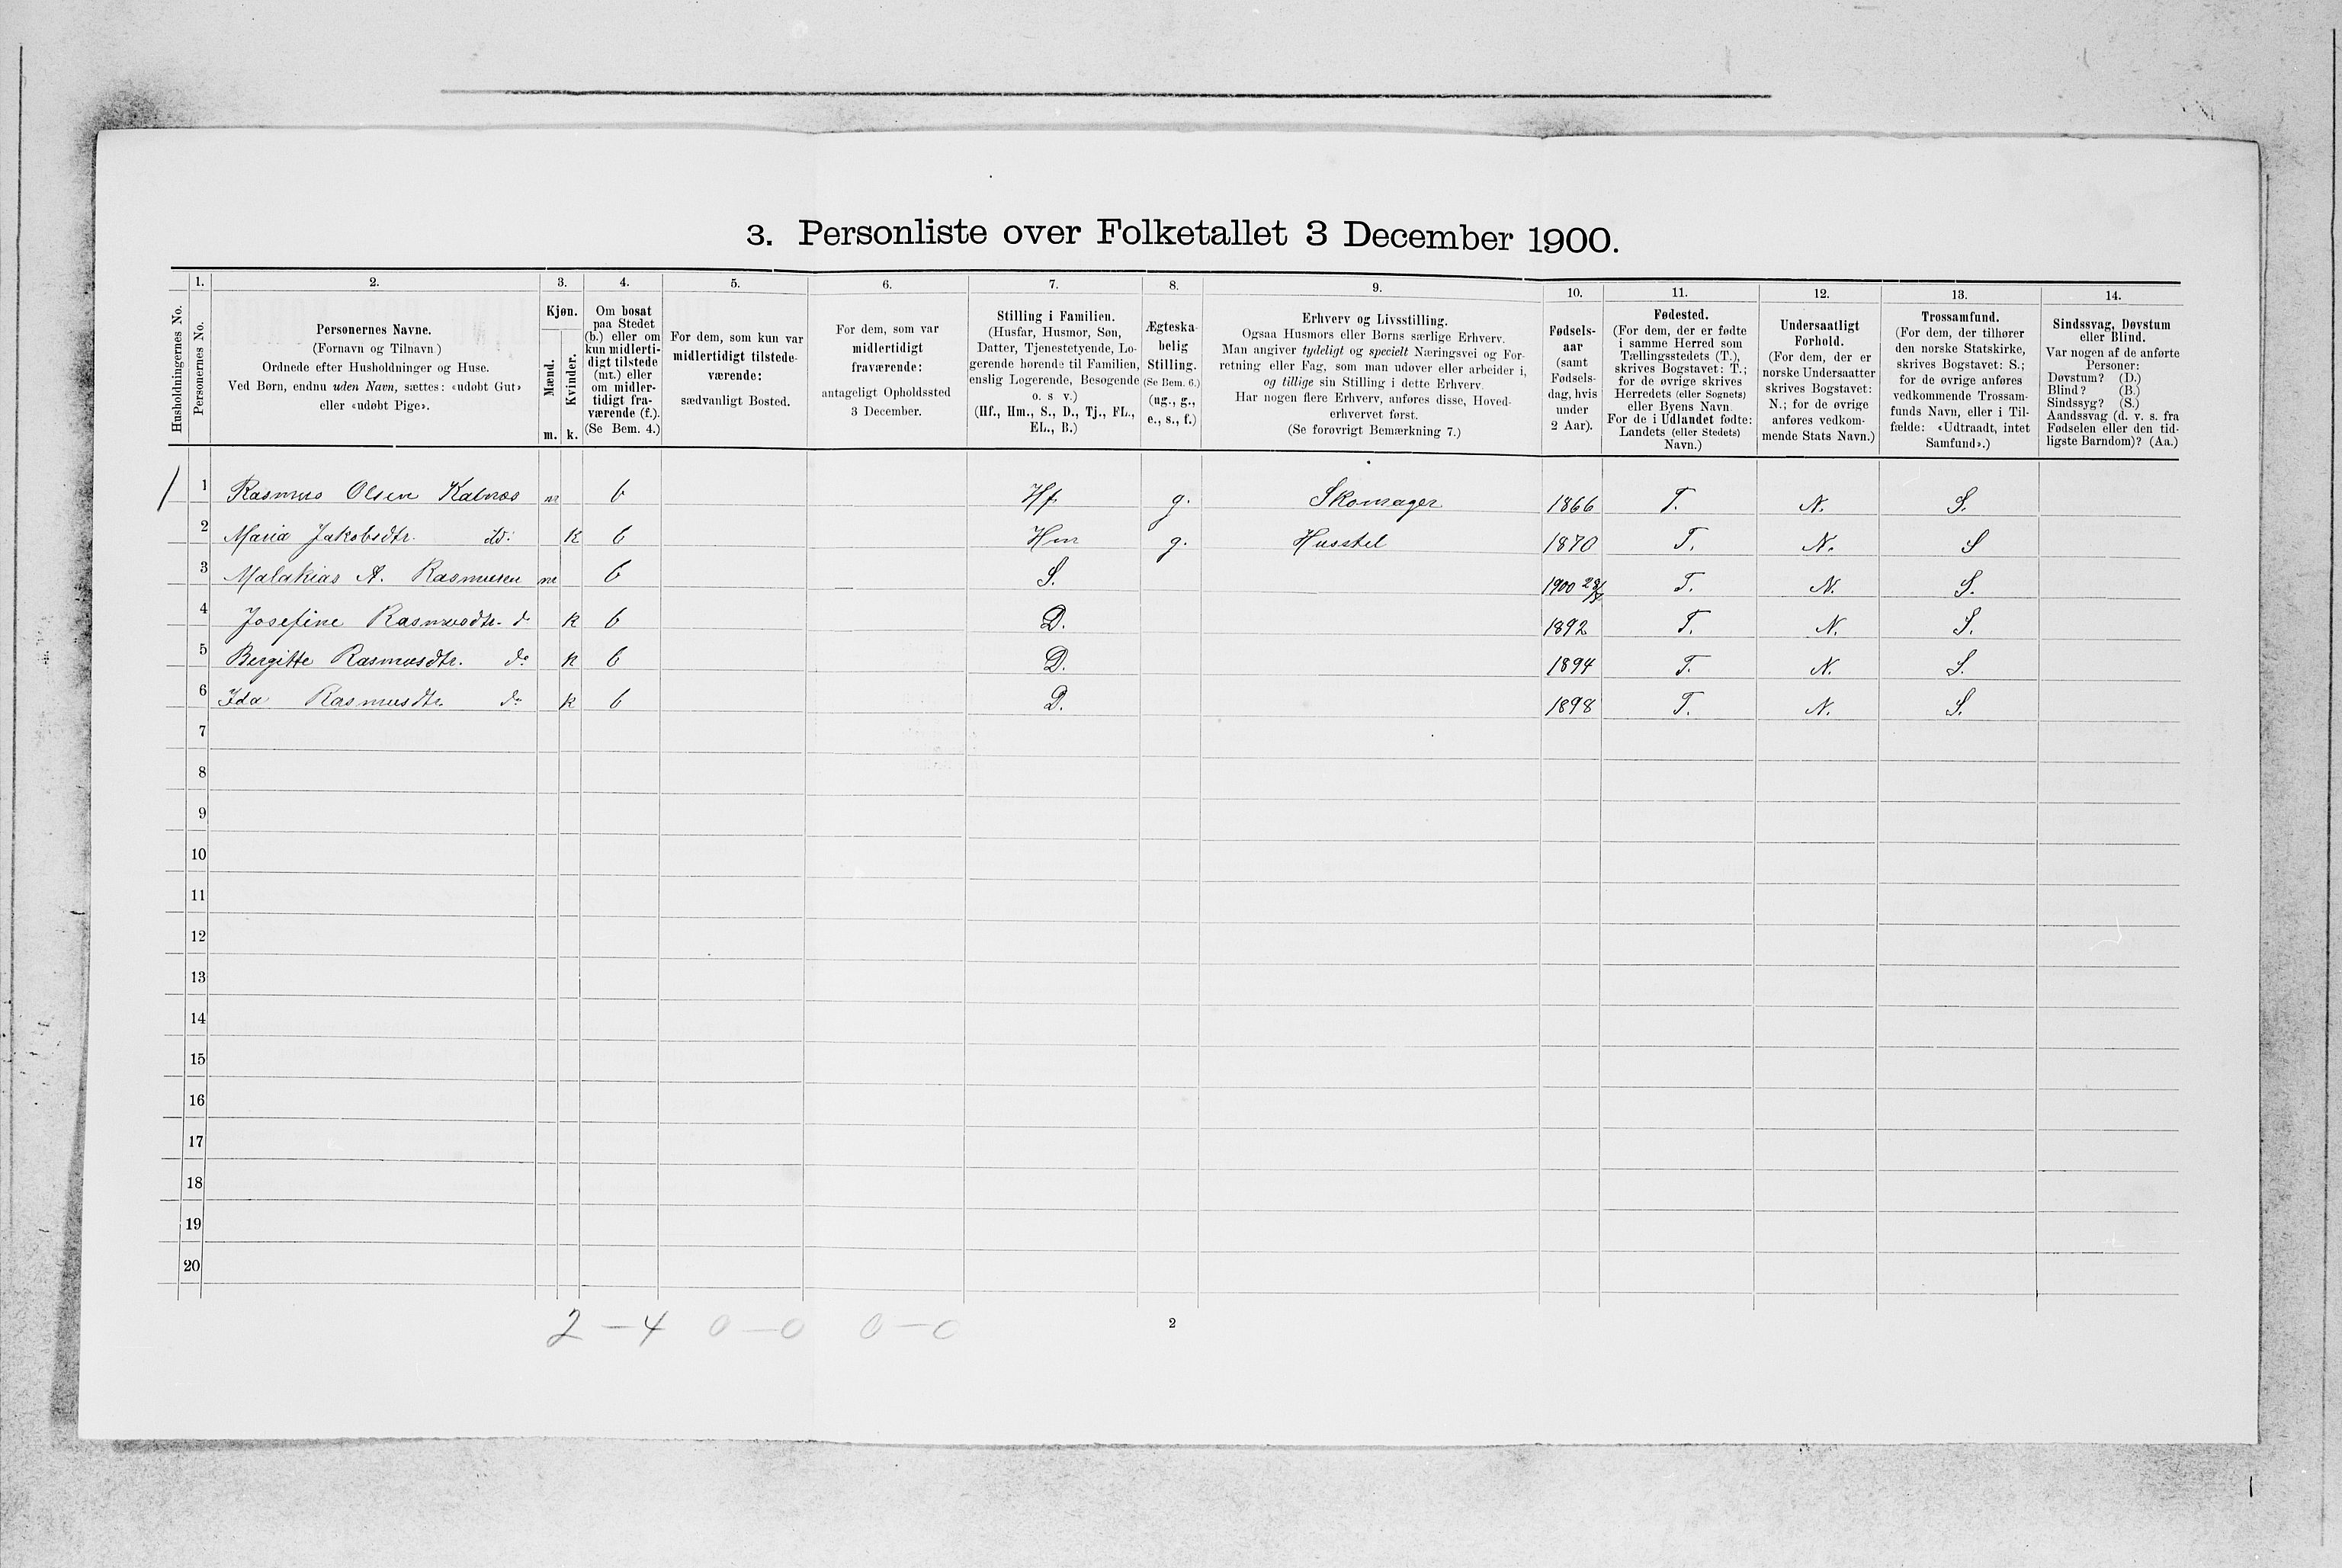 3. Personliste over Folketallet 3 December 1900.
Husholdningernes No.
1.
Personernes No.
2.
Personernes Navne.
(Fornavn og Tilnavn)
Ordnede efter Husholdninger og Huse.
Ved Børn, endnu uden Navn, sættes: «udøbt Gut»
eller «udøbt Pige».
3.
Kjøn.
Mænd.
Kvinder.
m. k.
4.
Om bosat
paa Stedet
(b.) eller om
kun midlerti-
digt tilstede
(mt.) eller
om midler-
tidigt fra-
værende (f.).
(Se Bem. 4.)
5.
For dem, som kun var
midlertidigt tilstede-
værende:
sædvanligt Bosted.
6.
For dem, som var
midlertidigt
fraværende:
antageligt Opholdssted
3 December.
7.
Stilling i Familien.
(Husfar, Husmor, Søn,
Datter, Tjenestetyende, Lo-
gerende hørende til Familien,
enslig Logerende, Besøgende
o. s v.)
(Hf., Hm., S., D., Tj., FL.,
EL., B.)
8.
Ægteska-
belig
Stilling.
(Se Bem. 6.)
(ug., g.,
e., s., f.)
9.
Erhverv og Livsstilling.
Ogsaa Husmors eller Børns særlige Erhverv.
Man angiver tydeligt og specielt Næringsvei og For-
retning eller Fag, som man udøver eller arbeider i,
og tillige sin Stilling i dette Erhverv.
Har nogen flere Erhverv, anføres disse, Hoved-
erhvervet først.
(Se forøvrigt Bemærkning 7.)
10.
Fødsels-
aar
(samt
Fødsels-
dag, hvis
under
2 Aar).
11.
Fødested.
(For dem, der er fødte
i samme Herred som
Tællingsstedets (T.),
skrives Bogstavet: T.;
for de øvrige skrives
Herredets (eller Sognets)
eller Byens Navn.
For de i Udlandet fødte:
Landets (eller Stedets)
Navn.)
12.
Undersaatligt
Forhold.
(For dem, der er
norske Undersaatter
skrives Bogstavet:
N.; for de øvrige
anføres vedkom-
mende Stats Navn.)
13.
Trossamfund.
(For dem, der tilhører
den norske Statskirke,
skrives Bogstavet: S.;
for de øvrige anføres
vedkommende Trossam-
funds Navn, eller i Til-
fælde: «Udtraadt, intet
Samfund».)
14.
Sindssvag, Døvstum
eller Blind.
Var nogen af de anførte
Personer:
Døvstum? (D.)
Blind? (B.)
Sindssyg? (S.)
Aandssvag (d. v. s. fra
Fødselen eller den tid-
ligste Barndom)? (Aa.)
1 Rasmus Olsen Kalnæs m b Hf g. Skomager 1866 T. N. S.
2 Maria Jakobsdtr. do: k b Hm g. Husstel 1870 T. N. S
3 Malakias A. Rasmusen m b S. 1900 T. N. S.
4 Josefine Rasmusdtr. d k b D. 1892 T. N. S.
5 Bergitte Rasmusdtr. do k b D. 1894 T. N. S.
6 Ida Rasmusdtr. do k b D. 1898 T. N. S.
7
8
9
10
11
12
13
14
15
16
17
18
19
20
2 – 4 0 – 0 0 – 0
2